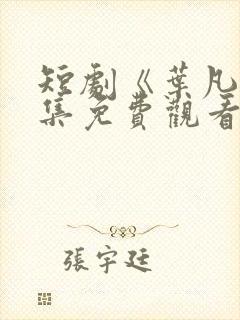 短劇《葉凡
集免費觀看
張宇廷